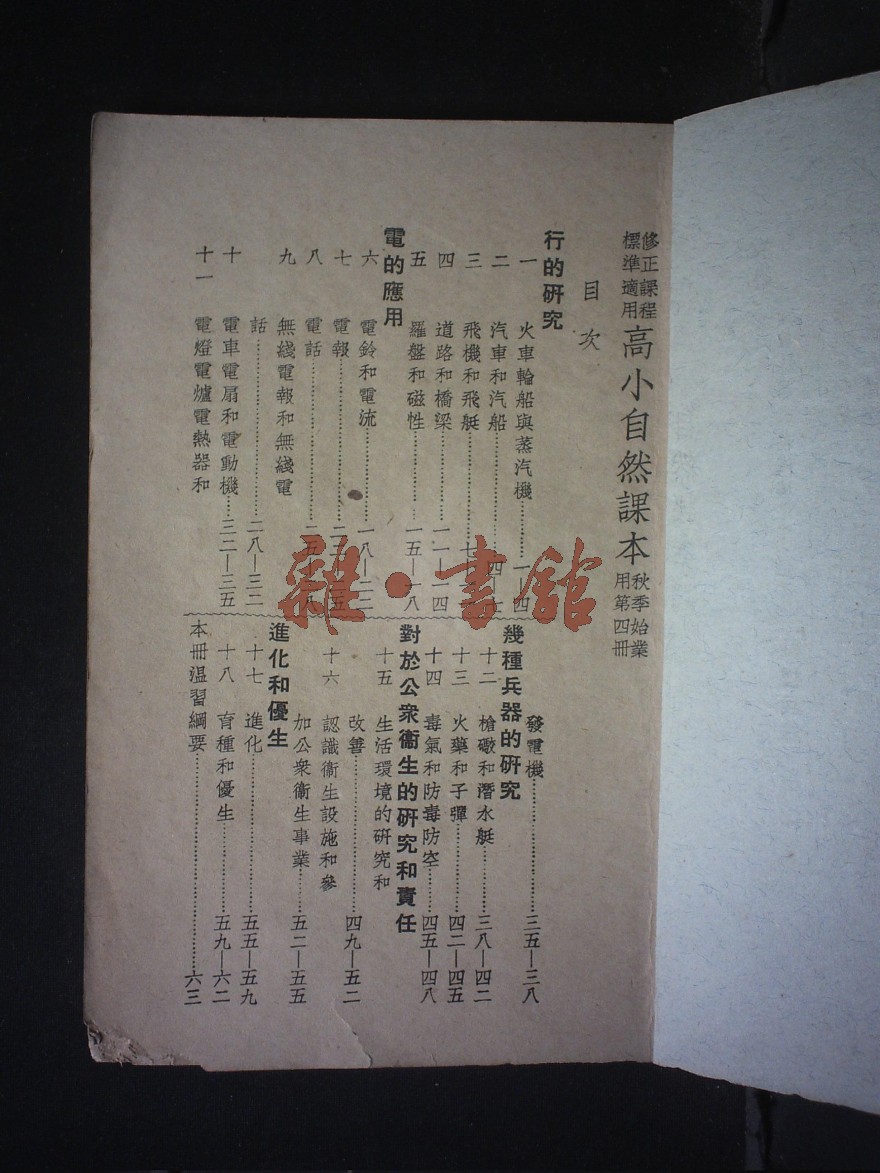 修正課程
標準適用
高小自然課本
秋季始業
用第四冊
目次
行的研究
一 火車輪船與蒸汽機………一—四
二 汽車和汽船………四—七
三 飛機和飛艇………七
四 道路和橋梁………一一—一四
五 羅盤和磁性………一五—一八
電的應用
六 電鈴和電流………一八—二三
七 電報………二三—二五
八 電話………二五—二八
九 無綫電報和無綫電
話………二八—三二
十 電車電扇和電動機…三二—三五
十一 電燈電爐電熱器和
發電機………三五—三八
幾種兵器的研究
十二 槍礮和潛水艇………三八—四二
十三 火藥和子彈………四二—四五
十四 毒氣和防毒防空………四五—四八
對於公衆衞生的研究和責任
十五 生活環境的研究和
改善………四九—五二
十六 認識衞生設施和參
加公衆衞生事業………五二—五五
進化和優生
十七 進化………五五—五九
十八 育種和優生………五九—六二
本冊温習綱要………六三
雜·書館